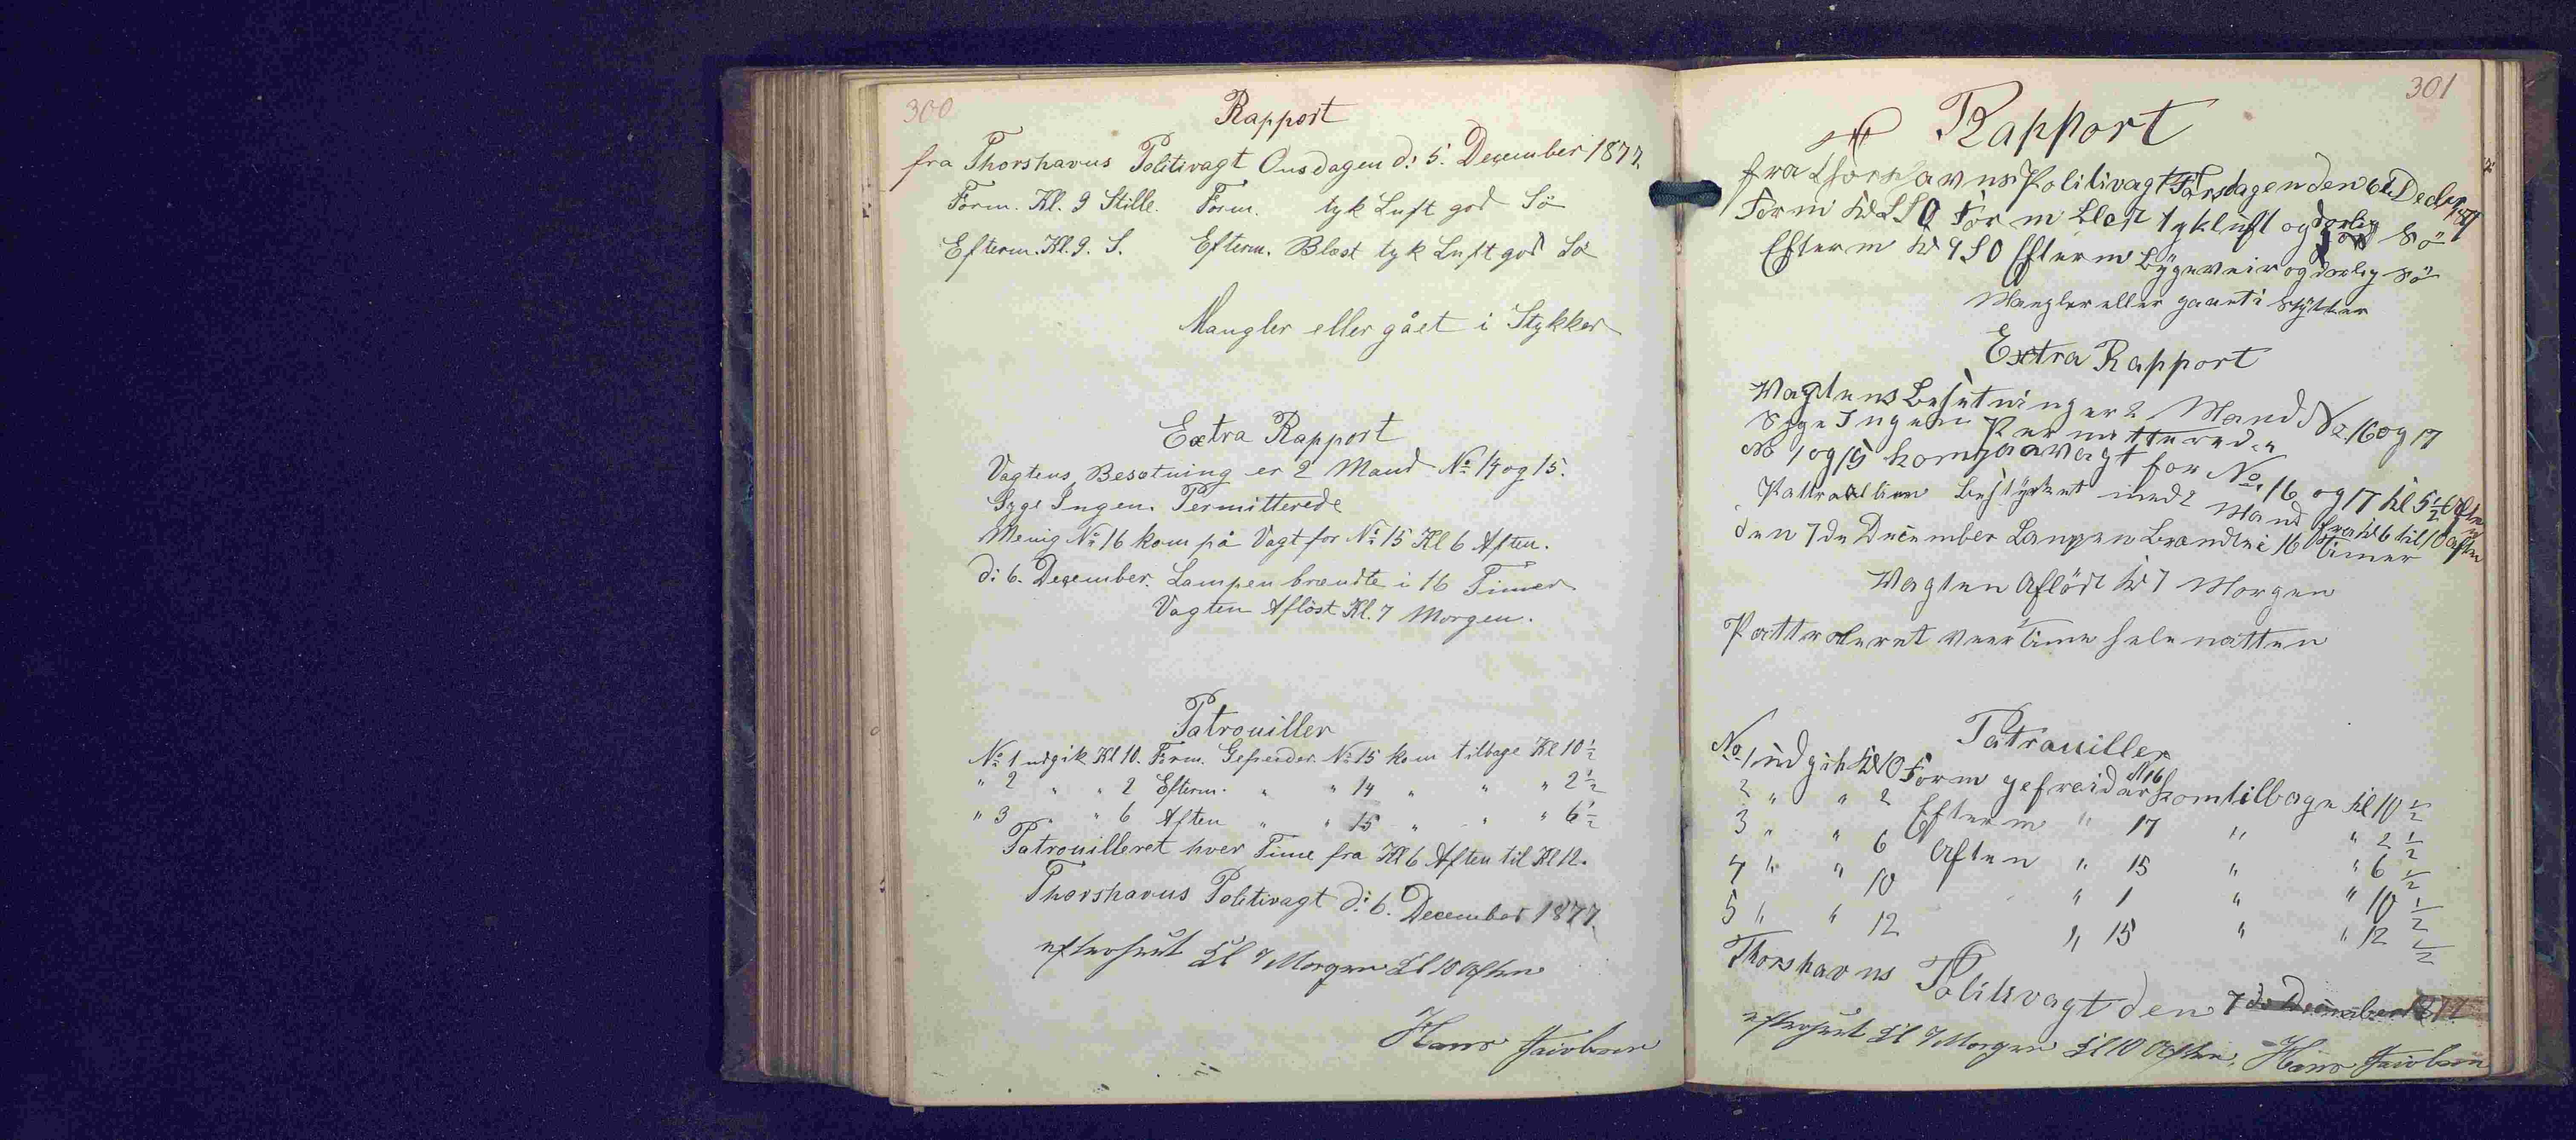 300
Rapport
fra Thorshavns Politivagt Onsdagen d: 5. December 1877.
Form. Kl. 9 Stille. Form. tyk Luft god Sö
Efterm. Kl. 9. S. Efterm. Blæst tyk Luft god Sö
Mangler eller gået i Stykker
Extra Rapport
Vagtens Besætning er 2 Mand No 14 og 15.
Syge Ingen. Permitterede
Menig No 16 kom på Vagt for No 15 Kl 6 Aften.
d: 6. December. Lampen brændte i 16 Timer
Vagten Aflöst Kl. 7 Morgen.
Patrouiller
No 1 udgik Kl 10. Form. Gefreider No 15 kom tilbage Kl 10 1/2
" 2 " " 2 Efterm. " " 14 " " " 2 1/2
" 3 " " 6 Aften " " 15 " " " 6 1/2
Patrouilleret hver Time fra Kl 6 Aften til Kl 12.
Thorshavns Politivagt d: 6. December 1877.
efterseet Kl 9 Morgen Kl 10 Aften
Hans Jacobsen
301
Rapport
fra Thorshavns Politivagt Torsdagen den 6te Decbr 1877
Form Kl 9 S O Form blest tykluft og dorlig Sö
Efterm Kl 9 S O Efterm bygeveir og dorlig Sö
Mangler eller gaaet i Stykker
Extra Rapport
Vagtens Besetning er 2 Mand No. 16 og 17
Syge Ingen Permitterede "
No 1 og 15 kom paa vagt for No. 16 og 17 Kl 5 1/2 Aften
Pattrollien bestyrket med 2 Mand fra Kl 6 til 10 aften
den 7de December Lampen brendte i 16 Timer
Vagten Aflöst Kl 7 Morgen
Pattroleret veer Time hele natten
Patrouiller
No 1 udgik Kl 10 Form gefreider N 16 kom tilbage Kl 10 1/2
2 " " 2 Efterm " 17 " " 2 1/2
3 " " 6 Aften " 15 " " 6 1/2
4 " " 10 " 1 " " 10 1/2
5 " " 12 " 15 " " 12 1/2
Thorshavns Politivagt den 7de December 1877.
efterseet Kl 9 Morgen Kl 10 Aften, Hans Jacobsen